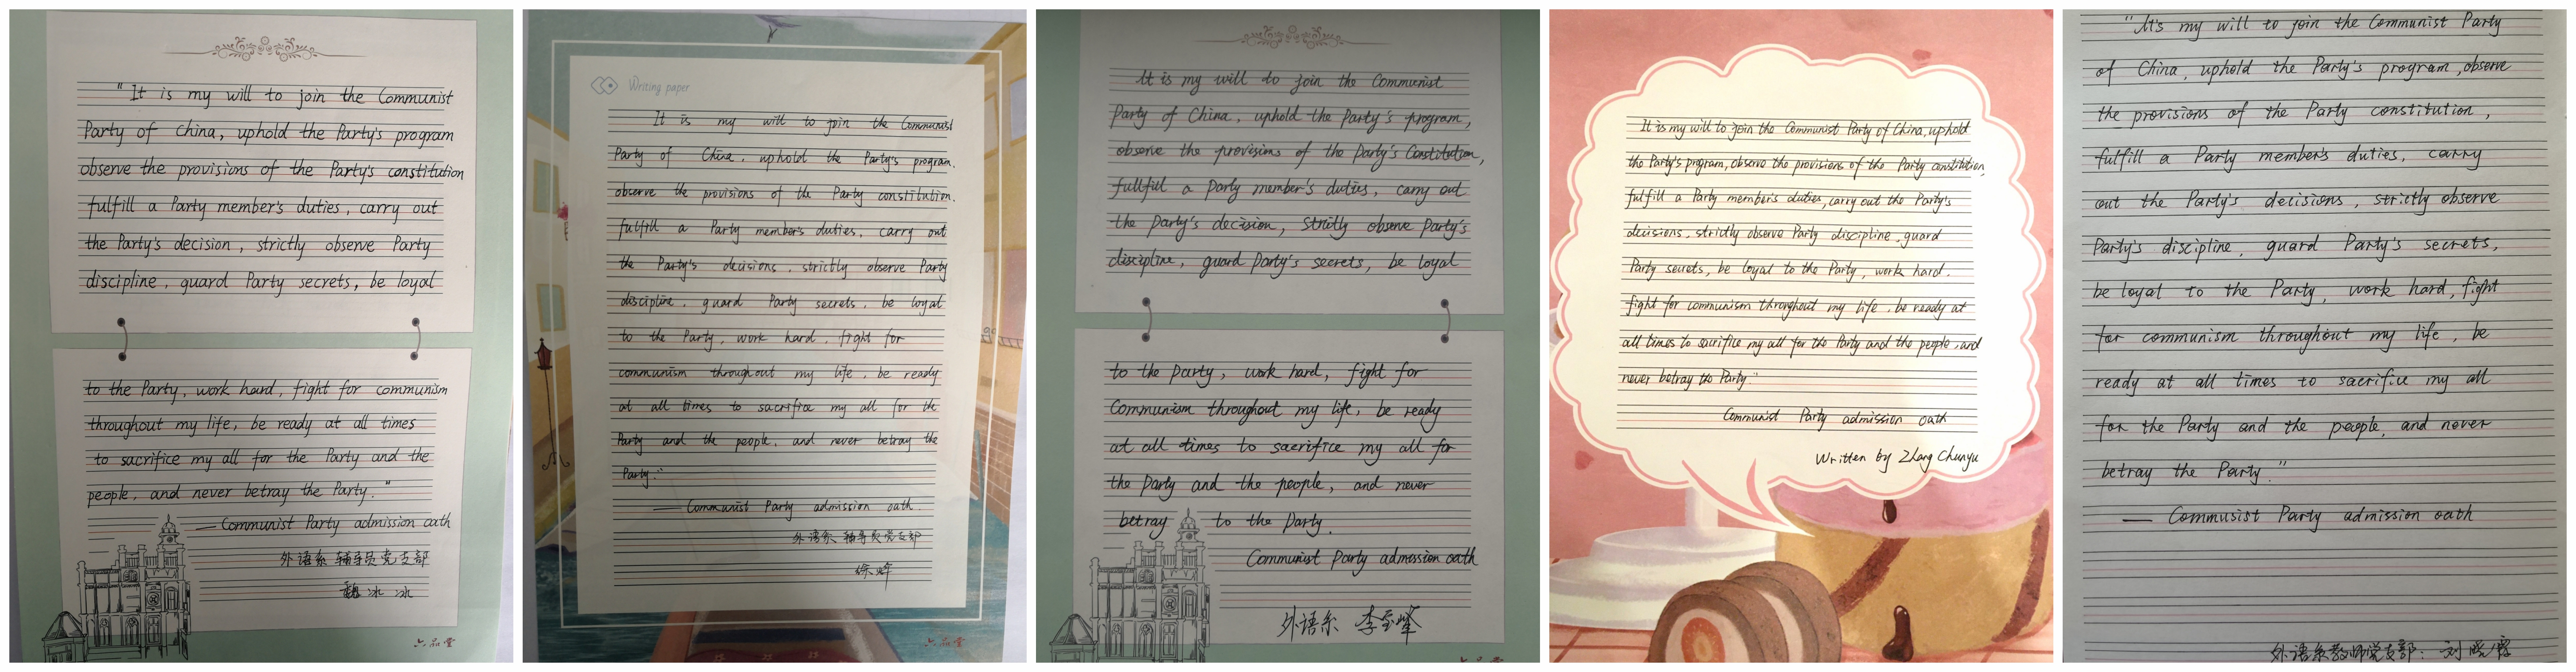 "It is my will to join the Communist
Party of China, uphold the Party's program
observe the provisions of the Party's constitution
fulfill a Party member's duties, carry out
the Party's decision, strictly observe Party
discipline, guard Party secrets, be loyal
to the Party, work hard, fight for communism
throughout my life, be ready at all times
to sacrifice my all for the Party and the
people, and never betray the Party."
—Communist Party admission oath
外语系 辅导员党支部
魏冰冰
六品堂
Writing paper
It is my will to join the Communist
Party of China, uphold the Party's program.
observe the provisions of the Party constitution.
fulfill a Party member's duties. carry out
the Party's decisions. strictly observe Party
discipline. guard Party secrets, be loyal
to the Party, work hard, fight for
communism throughout my life, be ready
at all times to sacrifice my all for the
Party and the people, and never betray the
Party."
—Communist Party admission oath.
外语系 辅导员党支部
徐峰
六品堂
It is my will to join the Communist
Party of China, uphold the Party's program,
observe the provisions of the Party's Constitution,
fullfill a Party member's duties, carry out
the Party's decision, strictly observe Party's
discipline, guard Party's secrets, be loyal
to the Party, work hard, fight for
Communism throughout my life, be ready
at all times to sacrifice my all for
the Party and the people, and never
betray to the Party.
Communist Party admission oath
外语系 李至峰
It is my will to join the Communist Party of China, uphold
the Party's program, observe the provisions of the Party constitution,
fulfill a Party member's duties, carry out the Party's
decisions, strictly observe Party discipline, guard
Party secrets, be loyal to the Party, work hard.
fight for communism throughout my life, be ready at
all times to sacrifice my all for the Party and the people, and
never betray the Party."
Communist Party admission oath
Written by Zhang Chunyu
"It's my will to join the Communist Party
of China, uphold the Party's program, observe
the provisions of the Party constitution,
fulfill a Party member's duties, carry
out the Party's decisions, strictly observe
Party's discipline, guard Party's secrets,
be loyal to the Party, work hard, fight
for communism throughout my life, be
ready at all times to sacrifice my all
for the Party and the people, and never
betray the Party."
— Communist Party admission oath
外语系教师党支部: 刘晓霞